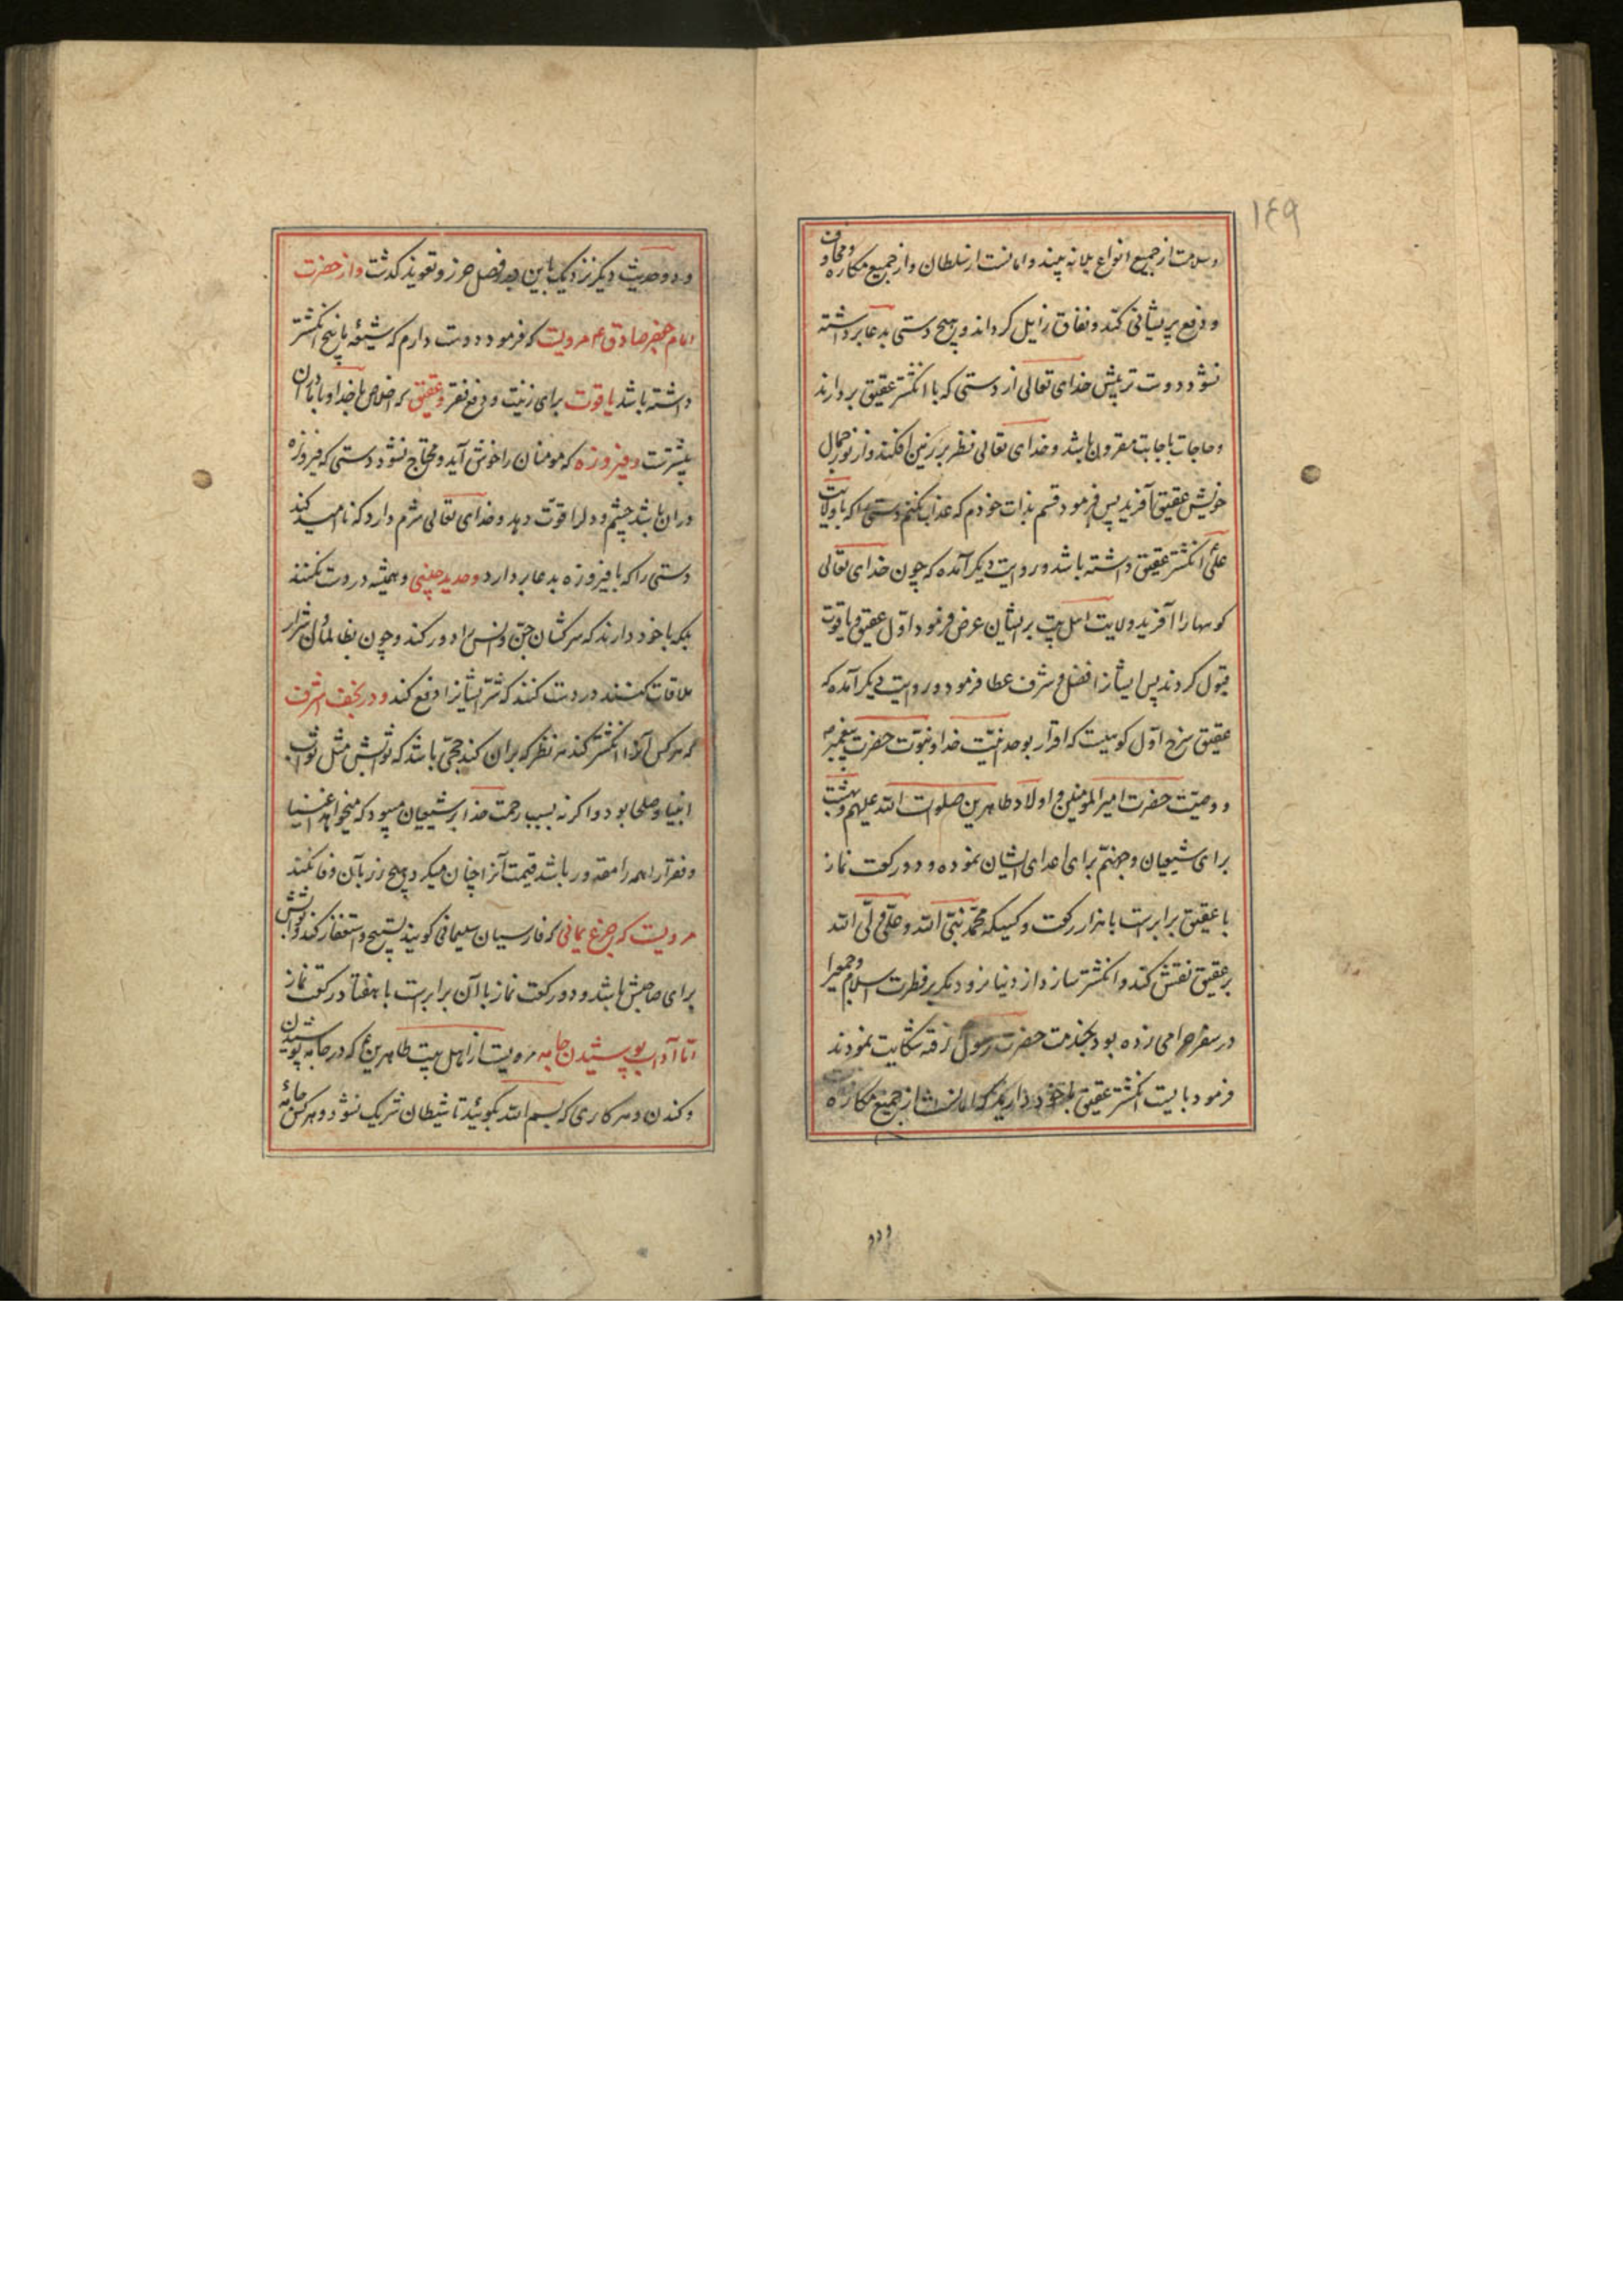 ١٤٩
وسلامت از جمیع انواع بلا نه بیند و امانست از سلطان و از جمیع مکاره و مخاوف
و دفع پریشانی کند و نفاق زایل کرداند و هیچ دستی بدعا برداشته
نشود دوست تر پیش خدای تعالی از دستی که با انکشتر عقیق بردارند
و حاجات باجابت مقرون باشد و خدای تعالی نظر بر زمین افکند و از نور جمال
خویش عقیق آفرید پس فرمود قسم بذات خودم که عذاب نکنم دستی را که با ولایت
علی انکشتر عقیق داشته باشد و روایت دیکر آمده که چون خدای تعالی
کوهها را آفرید ولایت اهل بیت بر ایشان عرض فرمود اول عقیق و یاقوت
قبول کردند پس ایشانرا فضل و شرف عطا فرمود و روایت دیکر آمده که
عقیق سرخ اول کوهیست که اقرار بوحدانیت خدا و نبوت حضرت پیغمبر
و وصیت حضرت امیرالمومنین و اولاد طاهرین صلوات الله علیهم و بهشت
برای شیعیان و جهنم برای اعدای ایشان نموده و دو رکعت نماز
با عقیق برابرست با هزار رکعت و کسیکه محمد نبی الله و علی ولی الله
بر عقیق نقش کند و انکشتر سازد از دنیا نرود مکر بر فطرت اسلام و جمعی را
در سفر حرامی زده بود بخدمت حضرت رسول رفته شکایت نمودند
فرمود بایست انکشتر عقیق با خود دارید که امانست از جمیع مکاره
و دو
و دو حدیث دیکر نزدیک باین در فصل حرز و تعویذ کذشت و از حضرت
امام جعفر صادق ع مرویست که فرمود دوست دارم که شیعه پانج انکشتر
داشته باشد یاقوت برای زینت و دفع فقر و عقیق که اخلاص با خدا و با امامان
بیشترست و فیروزه که مومنان را خوش آید و محتاج نشود دستی که فیروزه
دران باشد چشم و دلرا قوت دهد و خدای تعالی شرم دارد که نا امید کند
دستی را که با فیروزه بدعا بردارد و حدید چینی و همیشه در دست نکنند
بلکه با خود دارند که سرکشان جن و انس را دور کند و چون بظالمان شرار
ملاقات کنند در دست کنند که شر ایشانرا دفع کند و در نجف اشرف
که هر کس آنرا انکشتر کند هر نظر که بران کند حجی باشد که ثوابش مثل ثواب
انبیا و صلحا بود و اکر نه بسبب رحمت خدا بر شیعیان میبود که میخواهد اغنیا
و فقرا را همه را مقدور باشد قیمت آنرا چنان میکرد هیچ زر بآن وفا نکند
مرویست که جزع یمانی که فارسیان سلیمانی کویند تسبیح و استغفار کند و ثوابش
برای صاحبش باشد و دو رکعت نماز با آن برابرست با هفتاد رکعت نماز
اما آداب پوشیدن جامه مرویست از اهل بیت طاهرین ع که در جامه پوشیدن
و کندن و هر کاری که بسم الله بکوئید تا شیطان شریک نشود و هر کس جامه